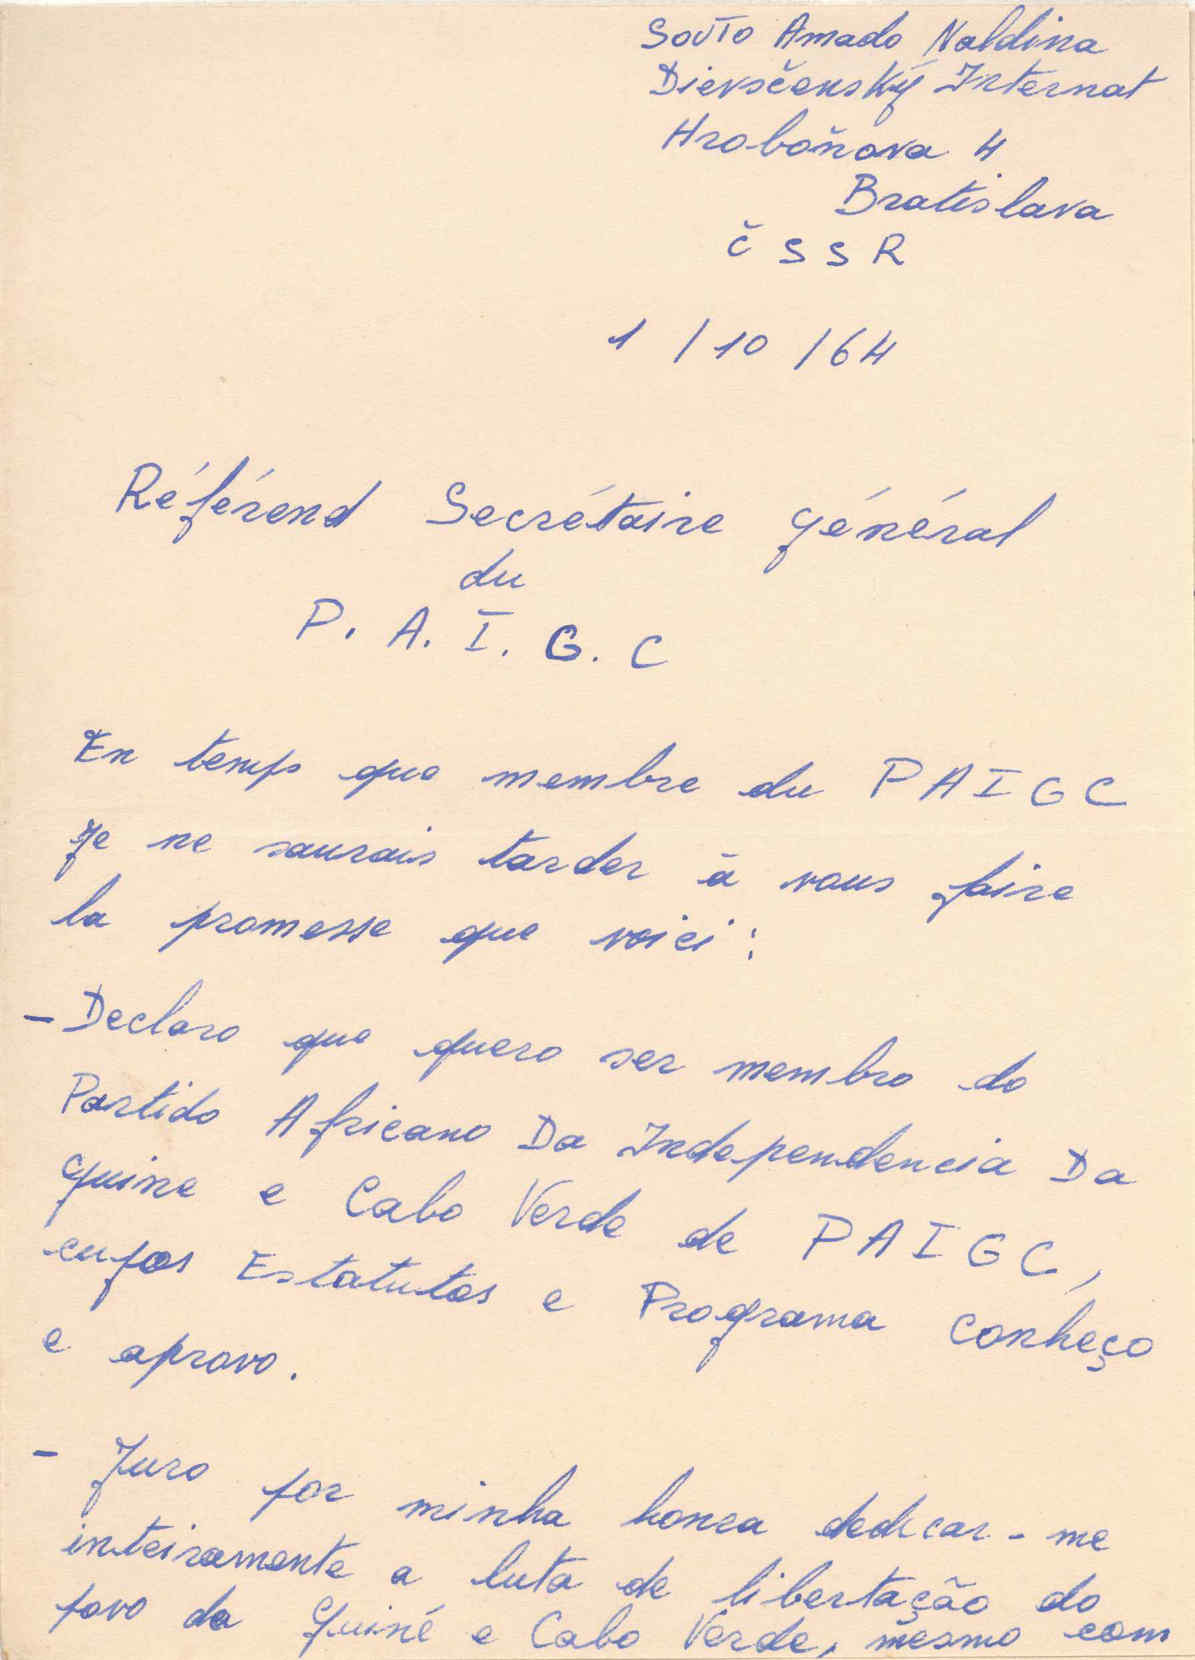 Souto Amado Naldina
Dievčenský Internat
Hroboňova 4
Bratislava
ČSSR
1/10/64
Référend Secrétaire Général
du
P. A. I. G. C
En temps que membre du PAIGC
Je ne saurais tarder à vous faire
la promesse que voici :
- Declaro que quero ser membro do
Partido Africano Da Independencia Da
Guine e Cabo Verde de PAIGC,
cujos Estatutos e Programa conheço
e aprovo.
- Juro por minha honra dedicar-me
inteiramente a luta de libertação do
povo da Guiné e Cabo Verde, mesmo com